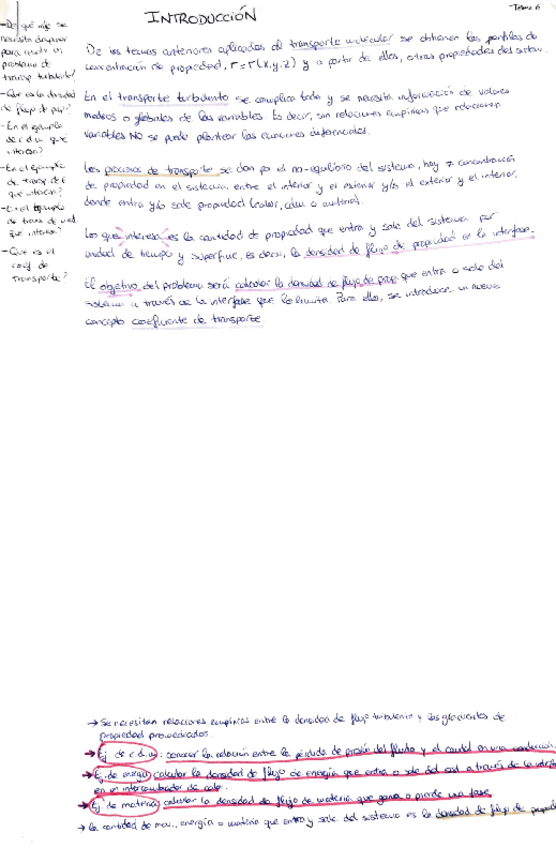 INTRODUCCIÓN
Tema 6
De los temas anteriores aplicados al transporte molecular se obtienen los perfiles de
concentración de propiedad, Γ=Γ(x,y,z) y a partir de ellos, otras propiedades del sistema.
En el transporte turbulento se complica todo y se necesita información de valores
medios o globales de las variables. Es decir, son relaciones empíricas que relacionan
variables NO se puede plantear las ecuaciones diferenciales.
Los procesos de transporte se dan por el no-equilibrio del sistema, hay ≠ concentración
de propiedad en el sistema, entre el interior y el exterior y/o el exterior y el interior,
donde entra y/o sale propiedad (calor, cdm o materia).
Los que interesa es la cantidad de propiedad que entra y sale del sistema por
unidad de tiempo y superficie, es decir, la densidad de flujo de propiedad en la interfase.
El objetivo del problema será calcular la densidad de flujo de prop que entra o sale del
sistema a través de la interfase que lo limita. Para ello, se introduce un nuevo
concepto coeficiente de transporte.
- De qué se
necesita disponer
para resolver un
problema de
transp turbulento?
- Que es la densidad
de flujo de prop?
- En el ejemplo
de c d m que
interesa?
- En el ejemplo
de transp de E
que interesa?
- En el ejemplo
de trans de mat.
que interesa?
- Que es el
coef de
transporte?
→ Se necesitan relaciones empíricas entre la densidad de flujo turbulento y los gradientes de
propiedad promediados.
→ Ej. de c.d.m: conocer la relación entre la pérdida de presión del fluido y el caudal en una conducción.
→ Ej. de energía calcular la densidad de flujo de energía que entra o sale del a través de la
en un intercambiador de calor.
→ Ej de materia: calcular la densidad de flujo de materia que gana o pierde una fase
→ la cantidad de mov., energía o materia que entra y sale del sistema es la densidad de flujo de